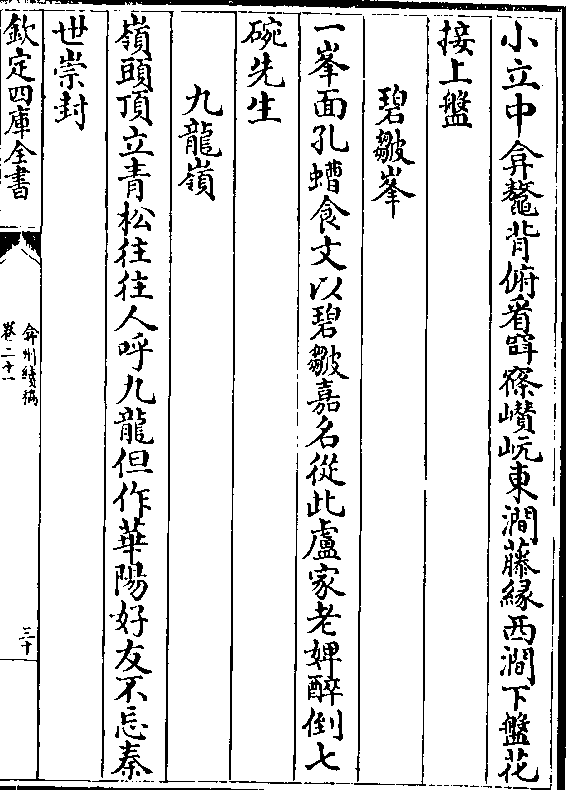 小立中弇鼇背俯看窅窱巑岏東澗藤縁西澗下盤花
接上盤
碧皺峯
一峯面孔螬食文以碧皺嘉名從此盧家老婢醉倒七
碗先生
九龍嶺
嶺頭頂立青松往往人呼九龍但作華陽好友不忘秦
世崇封
欽定四庫全書
弇州續稿
卷二十一
三十